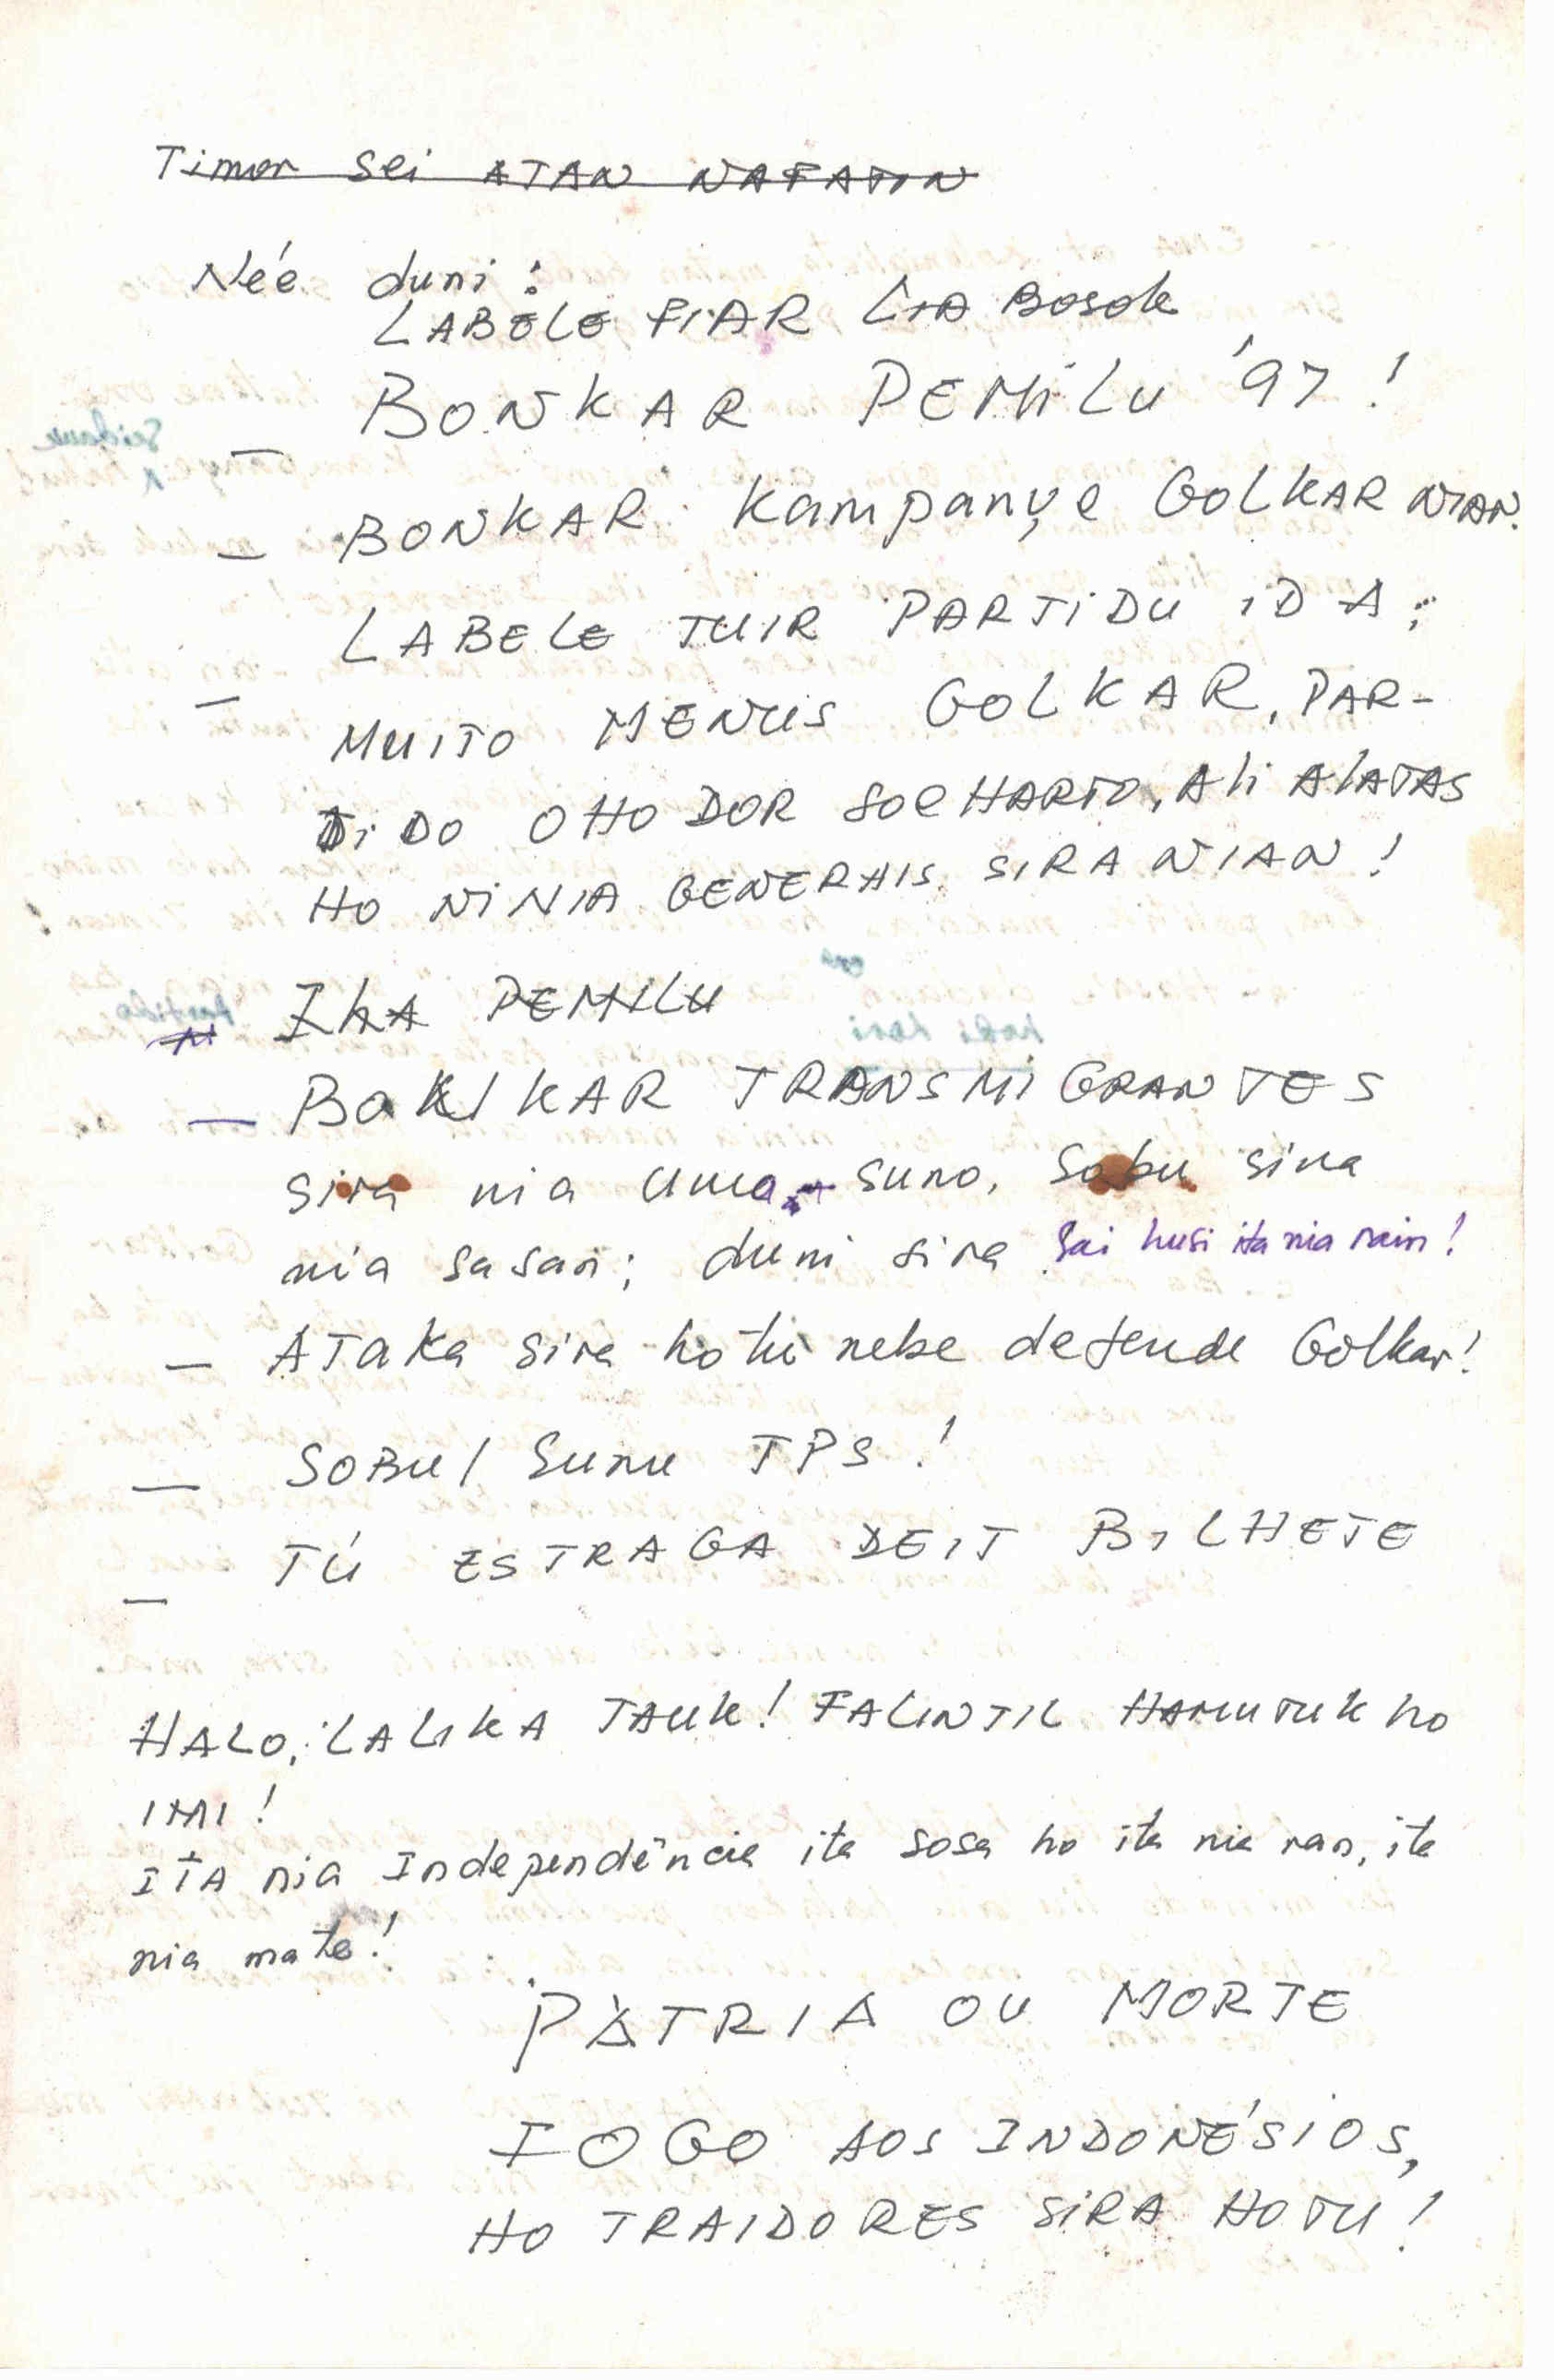 Timor sei ATAN NAFATIN
Née duni:
LABELE FIAR LIA BOSOK
BONKAR PEMiLu '97!
— BONKAR Kampanye GOLKAR NIAN.
— LABELE TUIR PARTiDU iDA;
— MUITO MENUS GOLKAR, PAR-
TiDO OHO DOR SOEHARTO, Ali ALATAS
HO NiNIA GENERAIS SIRA NIAN!
IHA PEMILU
— BaK/KAR TRANSMiGRANTES
sira nia uma, suno, sobu sira
nia sasan; duni sira sai husi ita nia rain!
— ATAKa sira hotu nebe defende Golkar!
— SOBU/ Sunu TPS!
— TÚ ESTRAGA DEIT BILHETE
HALO, LALIKA TAUK! FALINTIL HAMUTUK ho
IMI!
ITA nia Independência ita sosa ho ita nia ran, ita
nia mate!
PÁTRIA OU MORTE
FOGO AOS INDONÉSIOS,
HO TRAIDORES SiRA HOTU!